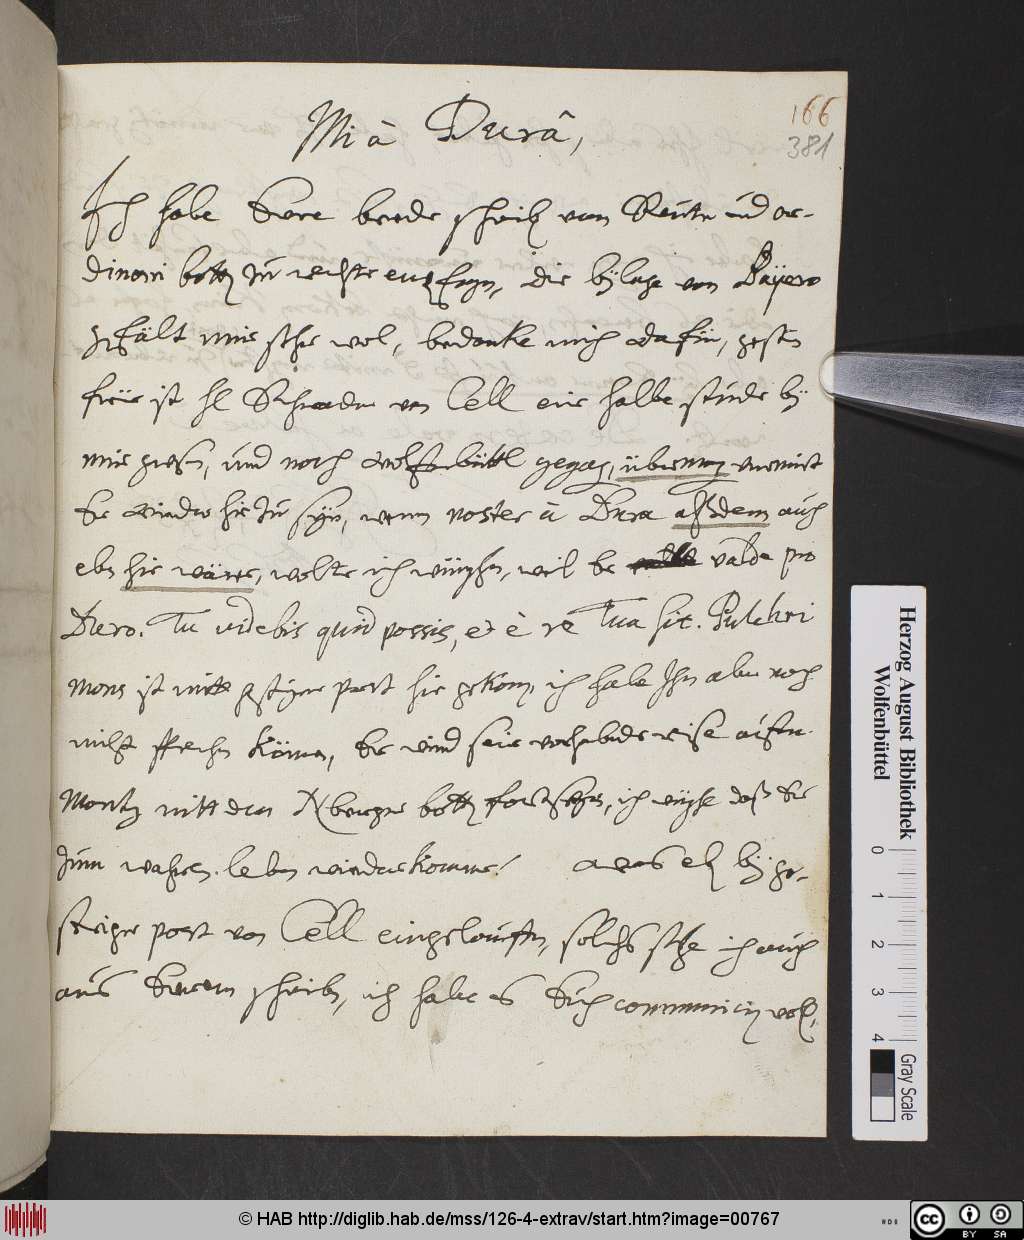 166
381
Mi à Durâ,
Ich habe Eure beede schreiben vom Reuter und or-
dinari botten zu rechte entpfangen, die bylage von Bayero
gefält mir seher wol, bedanke mich dafür, gestern
früe ist h. Schrader von Cell eine halbe stunde by
mir gewesen, und nach Wolfenbüttel gegangen, übermorgen vermeint
Er wieder hie zu sein, wenn noster à Dura alßdenn auch
eben hie wäre, wolte ich wünschen, weil Er valde pro
Duro. Tu videbis quid possis, et è re Tua sit. Pulchri
Mons ist mitt gestriger post hie gekommen, ich habe Ihn aber noch
nicht sprechen können, Er wird seine vorhabende reise
mitt dem Nberger botten fortsetzen, ich wünsche daß Er
zum wahren leben wiederkomme! was by ge-
striger post von Cell eingelauffen, solches sehe ich auch
aus Eurem schreiben, ich habe es Euch communiciren
Herzog August Bibliothek
Wolfenbüttel
0 1 2 3 4
Gray Scale
© HAB http://diglib.hab.de/mss/126-4-extrav/start.htm?image=00767
cc BY SA